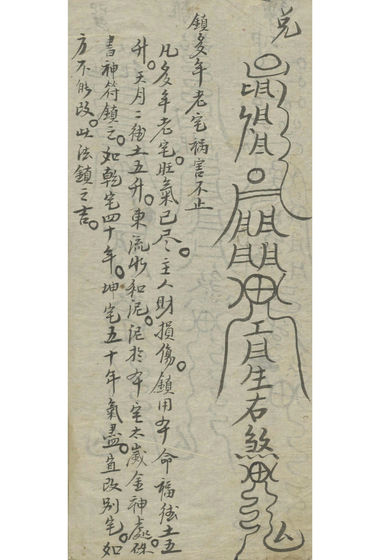 兌
生右煞
鎮多年老宅禍害不止
凡多年老宅旺氣已尽。主人財損傷。鎮用本命福德土五
升。天月二德土五升。東流水和泥。泥於本宅太歲金神處。硃
書神符鎮之。如乾宅四十年。坤宅五十年氣盡。宜改別宅。如
方不能改。此法鎮之吉。